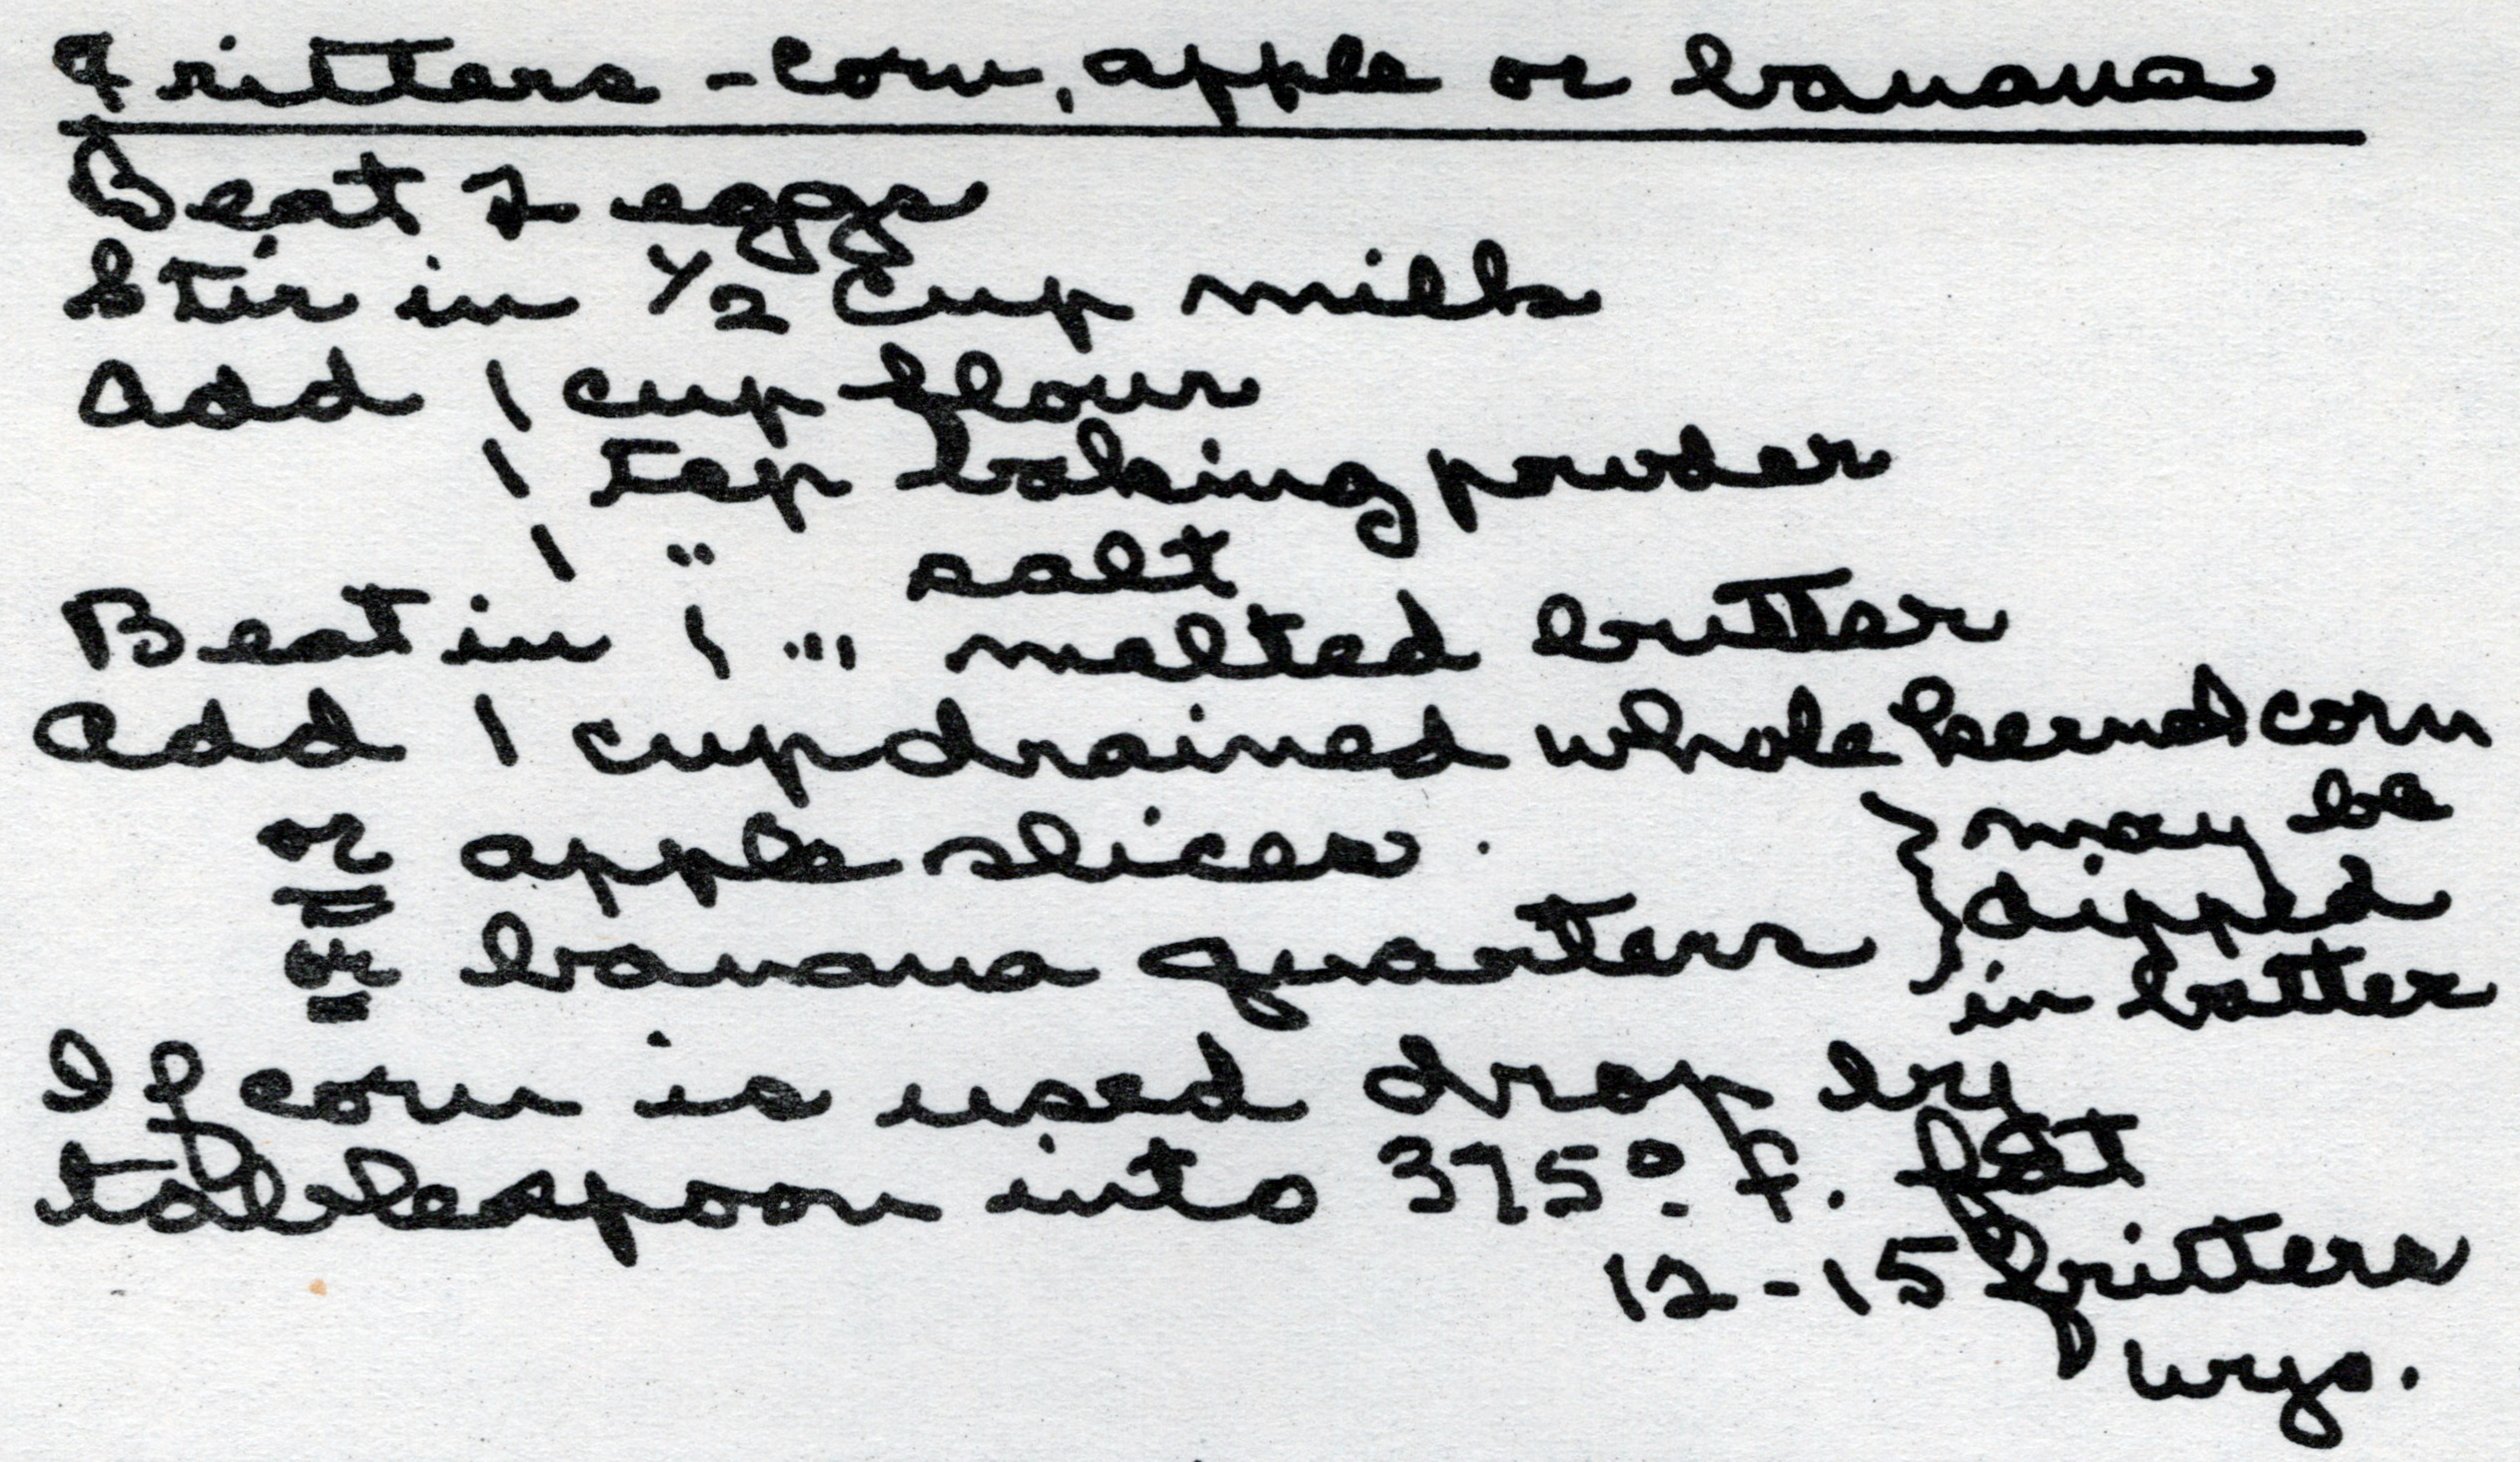 Fritters - Corn, apple or banana
Beat 2 eggs
Stir in 1/2 Cup milk
Add 1 cup flour
1 tsp baking powder
1 " salt
Beat in 1 "' melted butter
Add 1 cup drained whole kernel corn
or apple slices } may be
or banana quarters } dipped
in batter
If corn is used drop by
tablespoon into 375° F. fat
12-15 fritters
wys.